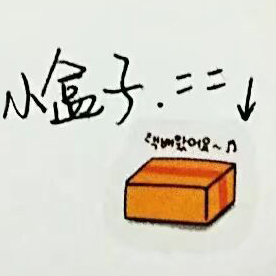 小盒子.==↓
택배왔어요~♫